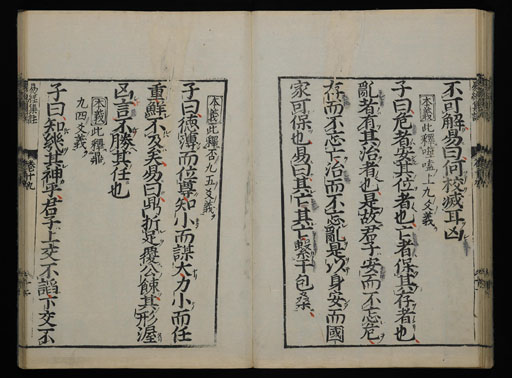 不可解易曰何校滅耳凶
本義此釋噬嗑上九爻義
子曰危者安其位者也亡者保其存者也
亂者有其治者也是故君子安而不忘危
存而不忘亡治而不忘亂是以身安而國
家可保也易曰其亡其亡繫于包桑
本義此釋否九五爻義
子曰德薄而位尊知小而謀大力小而任
重鮮不及矣易曰鼎折足覆公餗其形渥
凶言不勝其任也
本義此釋鼎
九四爻義
子曰知幾其神乎君子上交不諂下交不
易經集註 卷十九